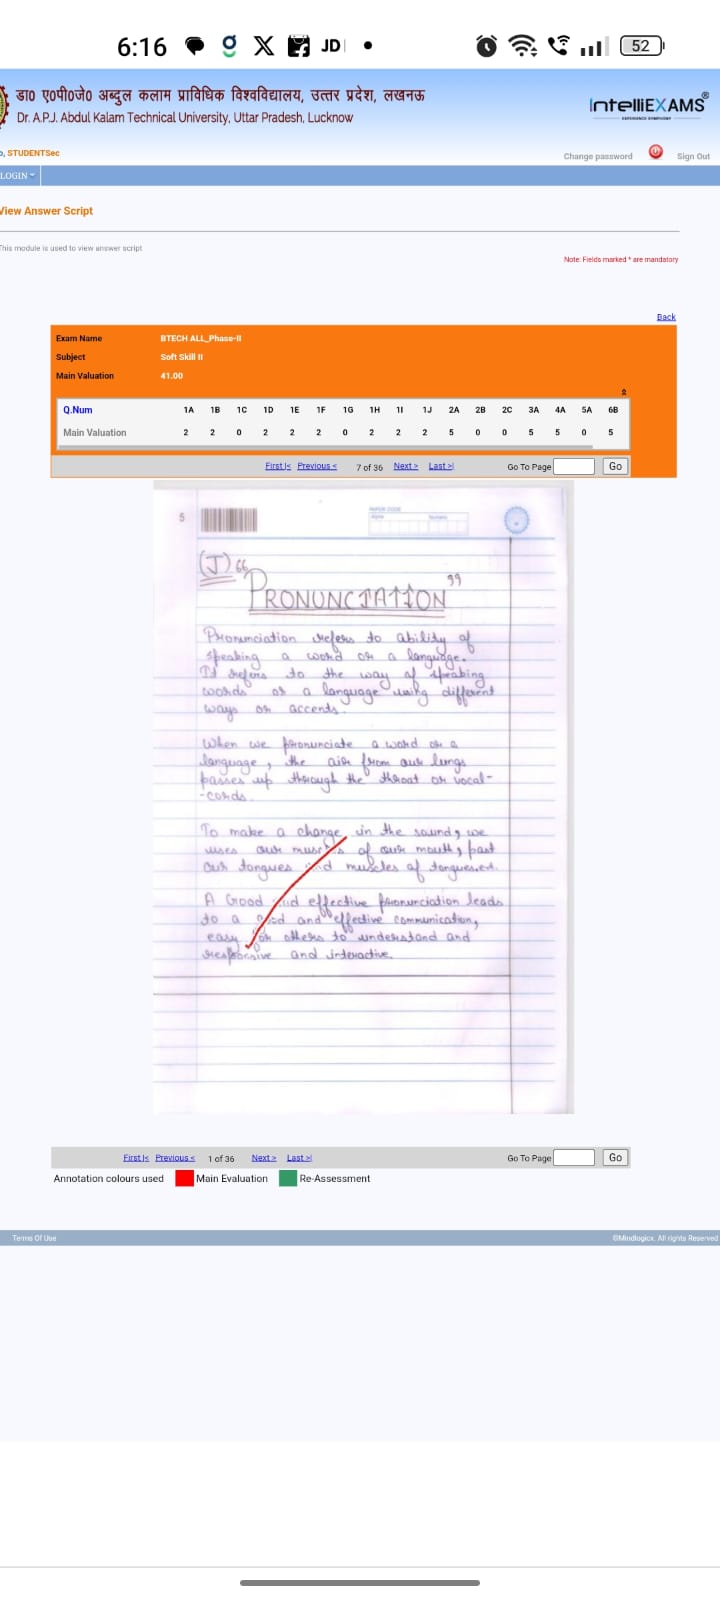 6:16
JD
52
डा0 ए0पी0जे0 अब्दुल कलाम प्राविधिक विश्वविद्यालय, उत्तर प्रदेश, लखनऊ
Dr. A.P.J. Abdul Kalam Technical University, Uttar Pradesh, Lucknow
IntelliEXAMS®
o, STUDENTSec
Change password
Sign Out
LOGIN
View Answer Script
This module is used to view answer script
Note: Fields marked * are mandatory
Back
Exam Name BTECH ALL_Phase-II
Subject Soft Skill II
Main Valuation 41.00
Q.Num 1A 1B 1C 1D 1E 1F 1G 1H 1I 1J 2A 2B 2C 3A 4A 5A 6B
Main Valuation 2 2 0 2 2 2 0 2 2 2 5 0 0 5 5 0 5
First|< Previous < 7 of 36 Next > Last >| Go To Page Go
5
PAPER CODE
(J) "
PRONUNCIATION "
Pronunciation refers to ability of
speaking a word or a language.
It refers to the way of speaking
words or a language using different
ways or accents.
When we pronunciate a word or a
language, the air from our lungs
passes up through the throat or vocal-
-cords.
To make a change in the sound, we
uses our muscles of our mouth, past
our tongues and muscles of
A Good and effective pronunciation leads
to a good and effective communication,
easy for others to understand and
responsive and interactive.
First|< Previous < 1 of 36 Next > Last >| Go To Page Go
Annotation colours used Main Evaluation Re-Assessment
Terms Of Use
©Mindlogicx. All rights Reserved